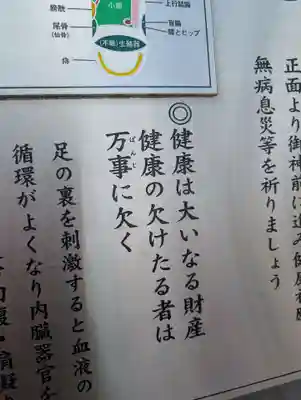 膀胱
小腸
尾骨
(仙骨)
(不眠)生殖器
痔
上行結腸
盲腸
膝とヒップ
正面より御神前に進み健康祈願
無病息災等を祈りましょう
◎健康は大いなる財産
健康の欠けたる者は
万事に欠く
ばんじ
足の裏を刺激すると血液の
循環がよくなり内臓器官